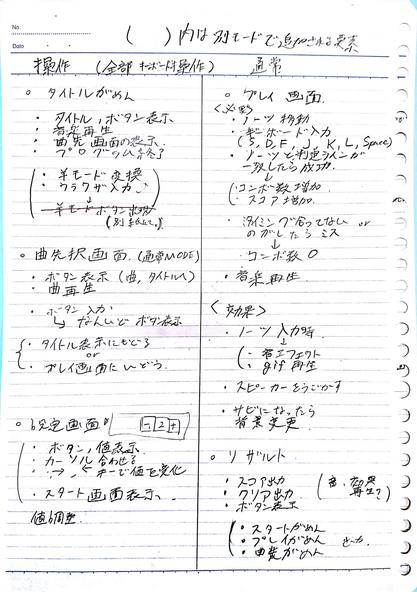 No.
Date
( )内は別モードで追加される要素
操作 (全部キーボード操作) 通常
○ タイトルがめん
・タイトル,ボタン表示
・音楽再生
・曲先択画面の表示
・プログラム終了
・羊モード変換
・ウラワザ入力
↓
羊モードボタン出現
○ 曲先択画面 (通常MODE)
・ボタン表示 (曲,タイトルへ)
・曲再生
・ボタン入力
↳ なんいどボタン表示
・タイトル表示にもどる
or
・プレイ画面にいどう
○ 設定画面
- 2 +
・ボタン,値表示
・カーソル合わせる
・→,←キーで値を変化
・スタート画面表示
値調整
○ プレイ画面
<必要>
・ノーツ移動
・キーボード入力
(S, D, F, J, K, L, Space)
・ノーツと判定ラインが
一致したら成功
↓
・コンボ数増加
・スコア増加
・タイミング合ってない or
のがしたらミス
↓
・コンボ数 0
・音楽再生
<効果>
・ノーツ入力時
↓
・音エフェクト
・gif再生
・スピーカーをうごかす
・サビになったら
背景変更
○ リザルト
・スコア出力
・クリア出力
・ボタン表示
・スタートがめん
・プレイがめん
・曲先がめん